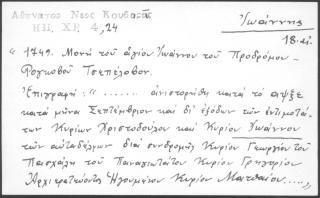 Αθηνάγορας Νέος Κουβαράς
ΗΠ. ΧΡ. 4, 24
Ἰωάννης
18. αἰ.
"1749. Μονὴ τοῦ ἁγίου Ἰωάννου τοῦ Προδρόμου -
Ρογκοβοῦ Τσεπέλοβον.
Ἐπιγραφή : "...... ἀνιστορήθη κατὰ τὸ αψξε
κατὰ μῆνα Σεπτέμβριον καὶ δι' ἐξόδων τῶν ἐντιμοτά-
των Κυρίων Χριστοδούλου καὶ Κυρίου Ἰωάννου
τῶν αὐταδέλφων διὰ συνδρομῆς Κυρίου Γεωργίου τοῦ
Πασχάλη τοῦ Παναγιωτάτου Κυρίου Γρηγορίου
Ἀρχιερατεύοντος Ἡγουμένου Κυρίου Ματθαίου....."